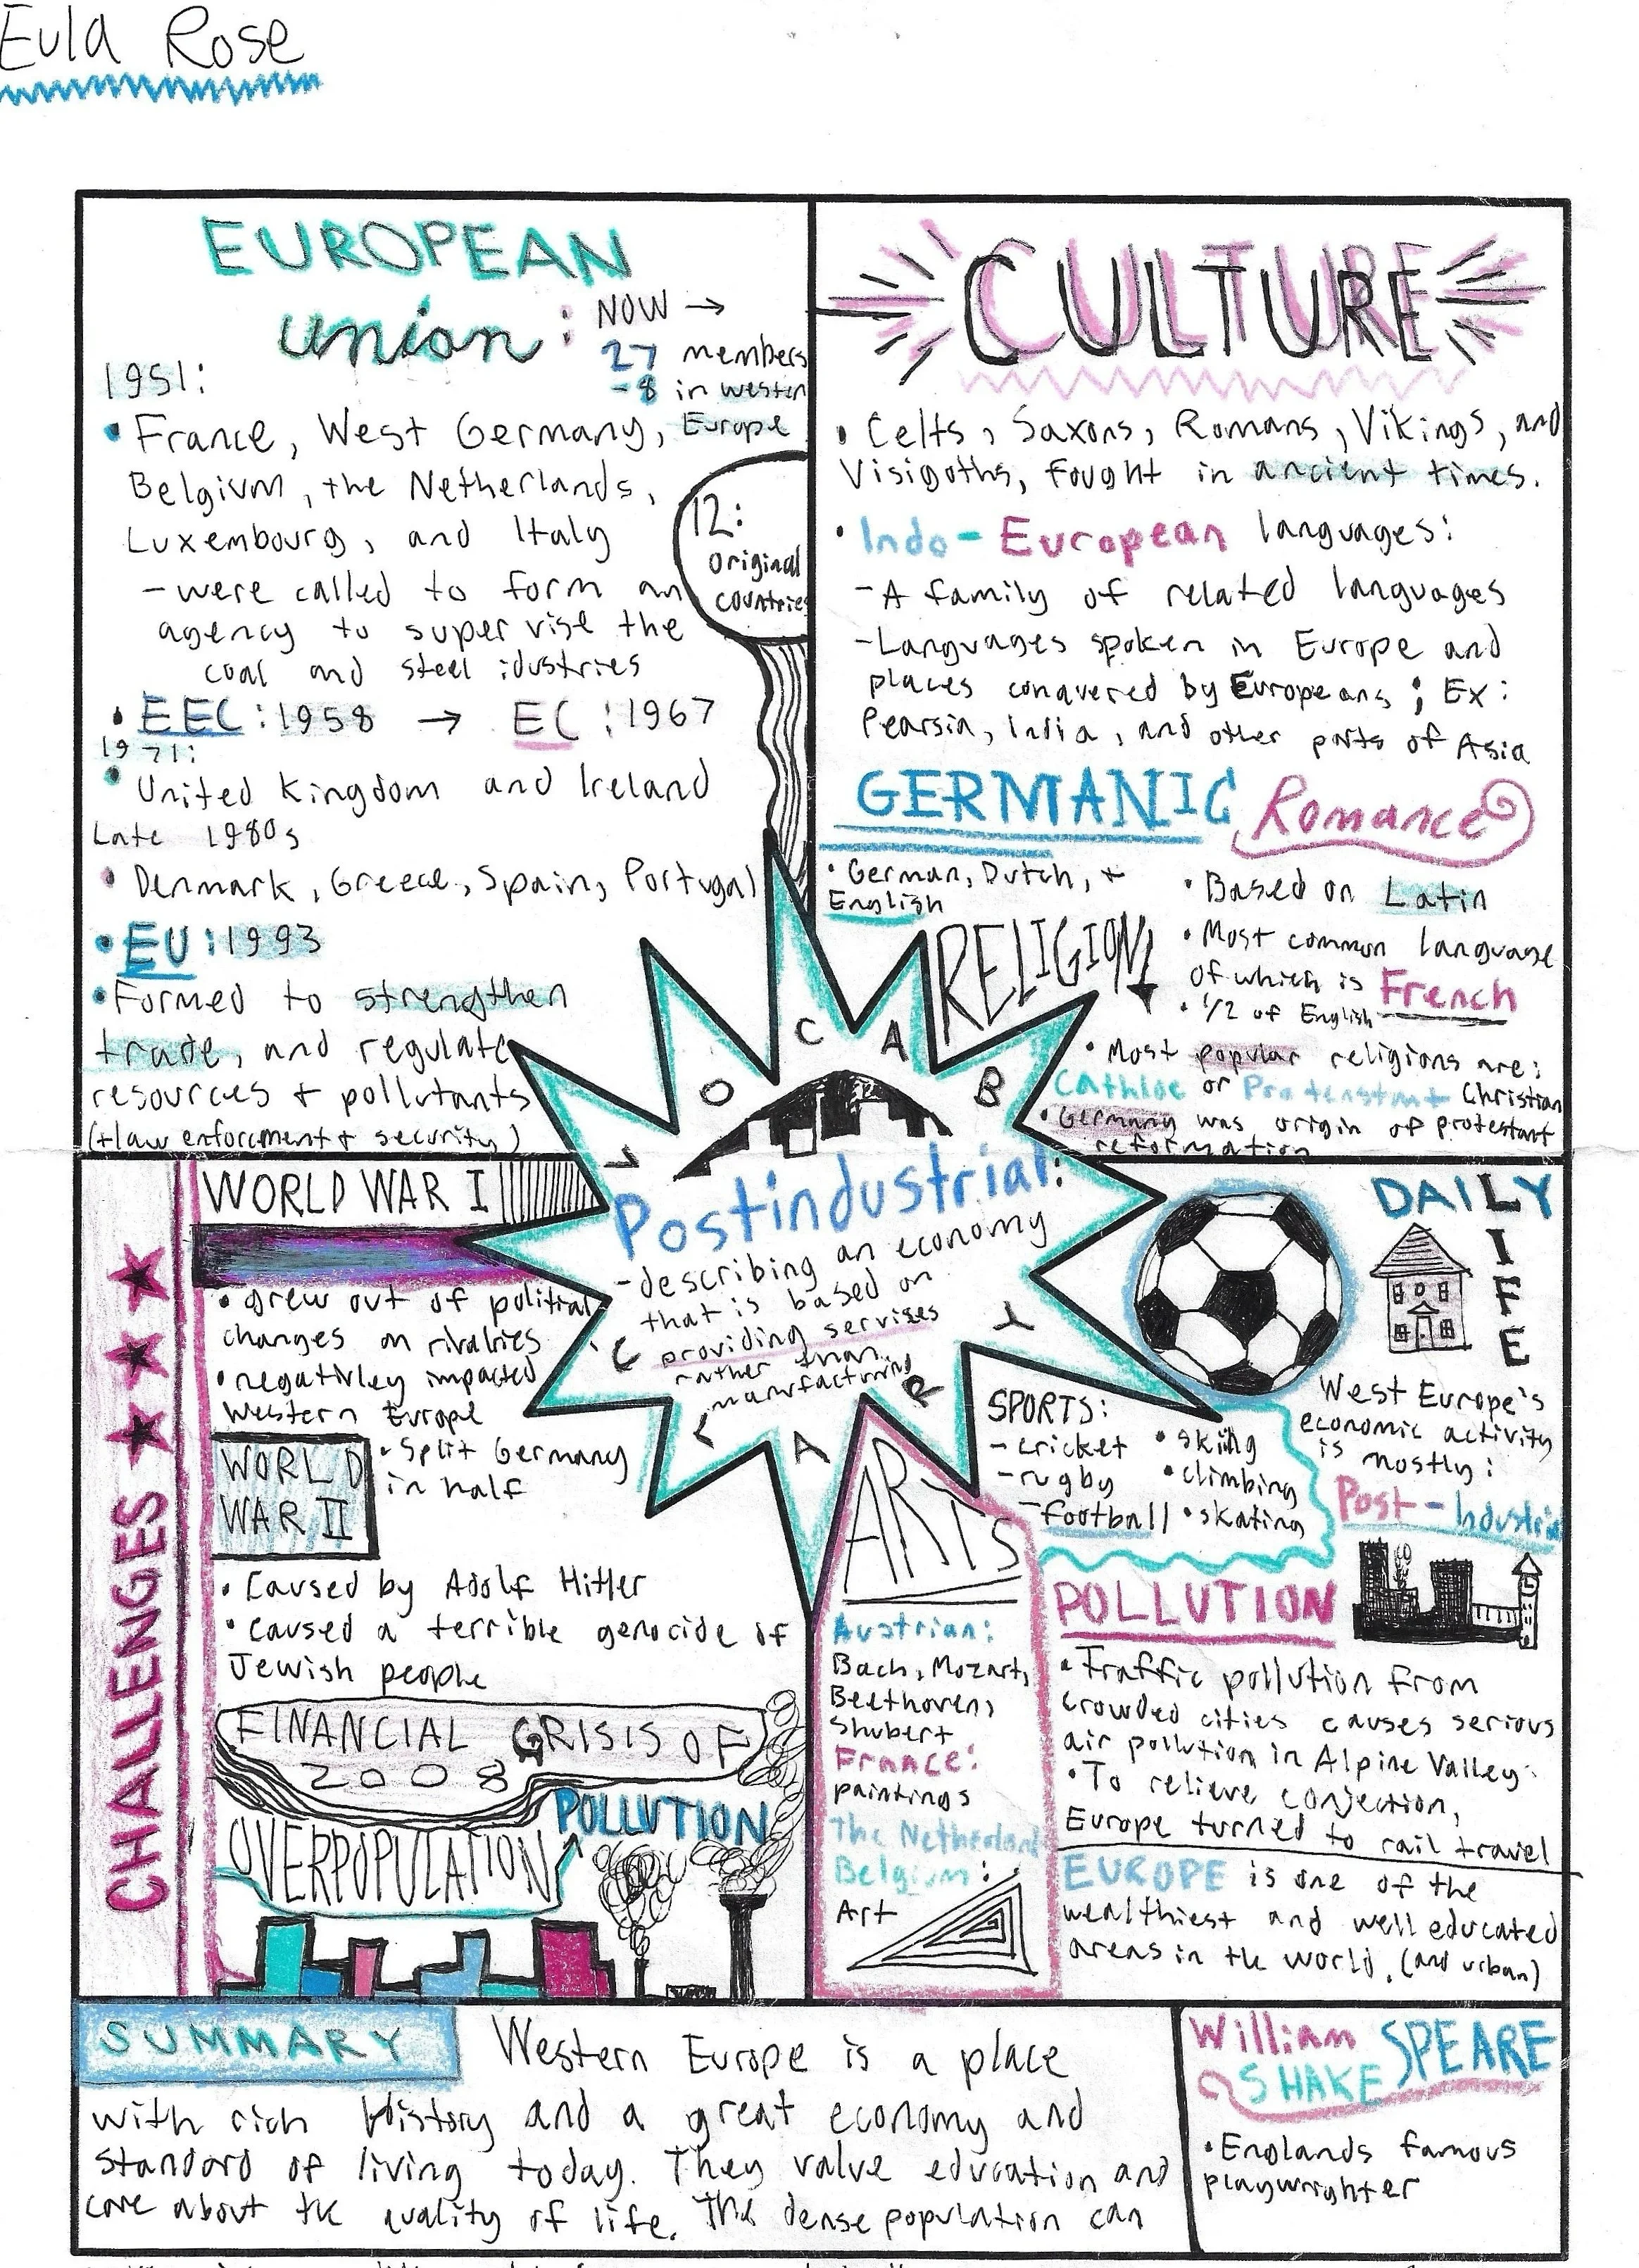 Eula Rose
EUROPEAN
union:
NOW →
27 members
-8 in western
Europe
1951:
• France, West Germany,
Belgium, the Netherlands,
Luxembourg, and Italy
- were called to form an
agency to supervise the
coal and steel idustries
12:
original
countries
• EEC: 1958 → EC: 1967
1971:
• United Kingdom and Ireland
Late 1980s
• Denmark, Greece, Spain, Portugal
• EU: 1993
• Formed to strengthen
trade, and regulate
resources + pollutants
(+law enforcment + security)
CULTURE
• Celts, Saxons, Romans, Vikings, and
Visigoths, fought in ancient times.
• Indo-European languages:
- A family of related languages
- Languages spoken in Europe and
places conquered by Europeans; Ex:
Pearsia, India, and other parts of Asia
GERMANIC
• German, Dutch, +
English
Romance
• Based on Latin
• Most common language
of which is French
• 1/2 of English
RELIGION
• Most popular religions are:
Cathloc or Protenstant Christian
• Germany was origin of protestant
reformation
VOCABULARY
Postindustrial:
- describing an economy
that is based on
providing servises
rather than
manufacturing
CHALLENGES
WORLD WAR I
• grew out of political
changes on rivalries
• negativley impacted
Western Europe
• Split Germany
in half
WORLD
WAR II
• Caused by Adolf Hitler
• Caused a terrible genocide of
Jewish people
FINANCIAL CRISIS OF
2008
POLLUTION
OVERPOPULATION
DAILY
LIFE
SPORTS:
- cricket • skiing
- rugby • climbing
- football • skating
West Europe's
economic activity
is mostly:
Post-Industrial
ARTS
Austrian:
Bach, Mozart,
Beethoven,
Shubert
France:
paintings
The Netherland
Belgium:
Art
POLLUTION
• Traffic pollution from
crowded cities causes serious
air pollution in Alpine Valley.
• To relieve conjection,
Europe turned to rail travel
EUROPE is one of the
wealthiest and well educated
areas in the world. (and urban)
SUMMARY
Western Europe is a place
with rich History and a great economy and
standard of living today. They value education and
care about the quality of life. The dense population can
William
SHAKESPEARE
• Englands famous
playwrighter